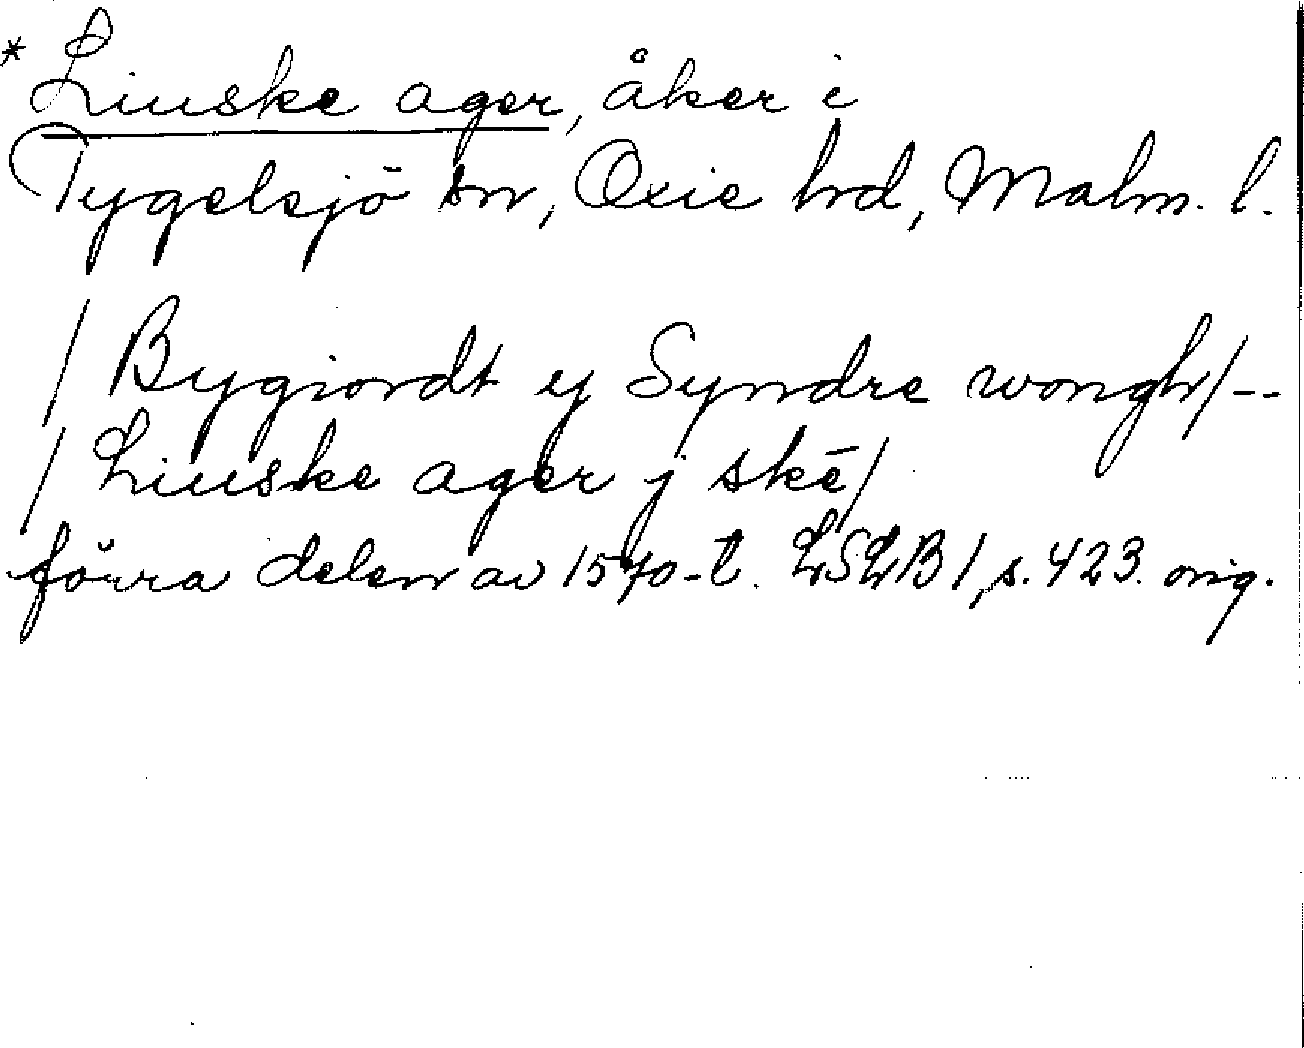 * Liuske ager, åker i
Tygelsjö sn, Oxie hd, Malm. l.
/ Bygiordt ej Syndre wongh/--
/ Liuske ager j skē/
förra delen av 1570-t. LSLB 1, s. 423. orig.